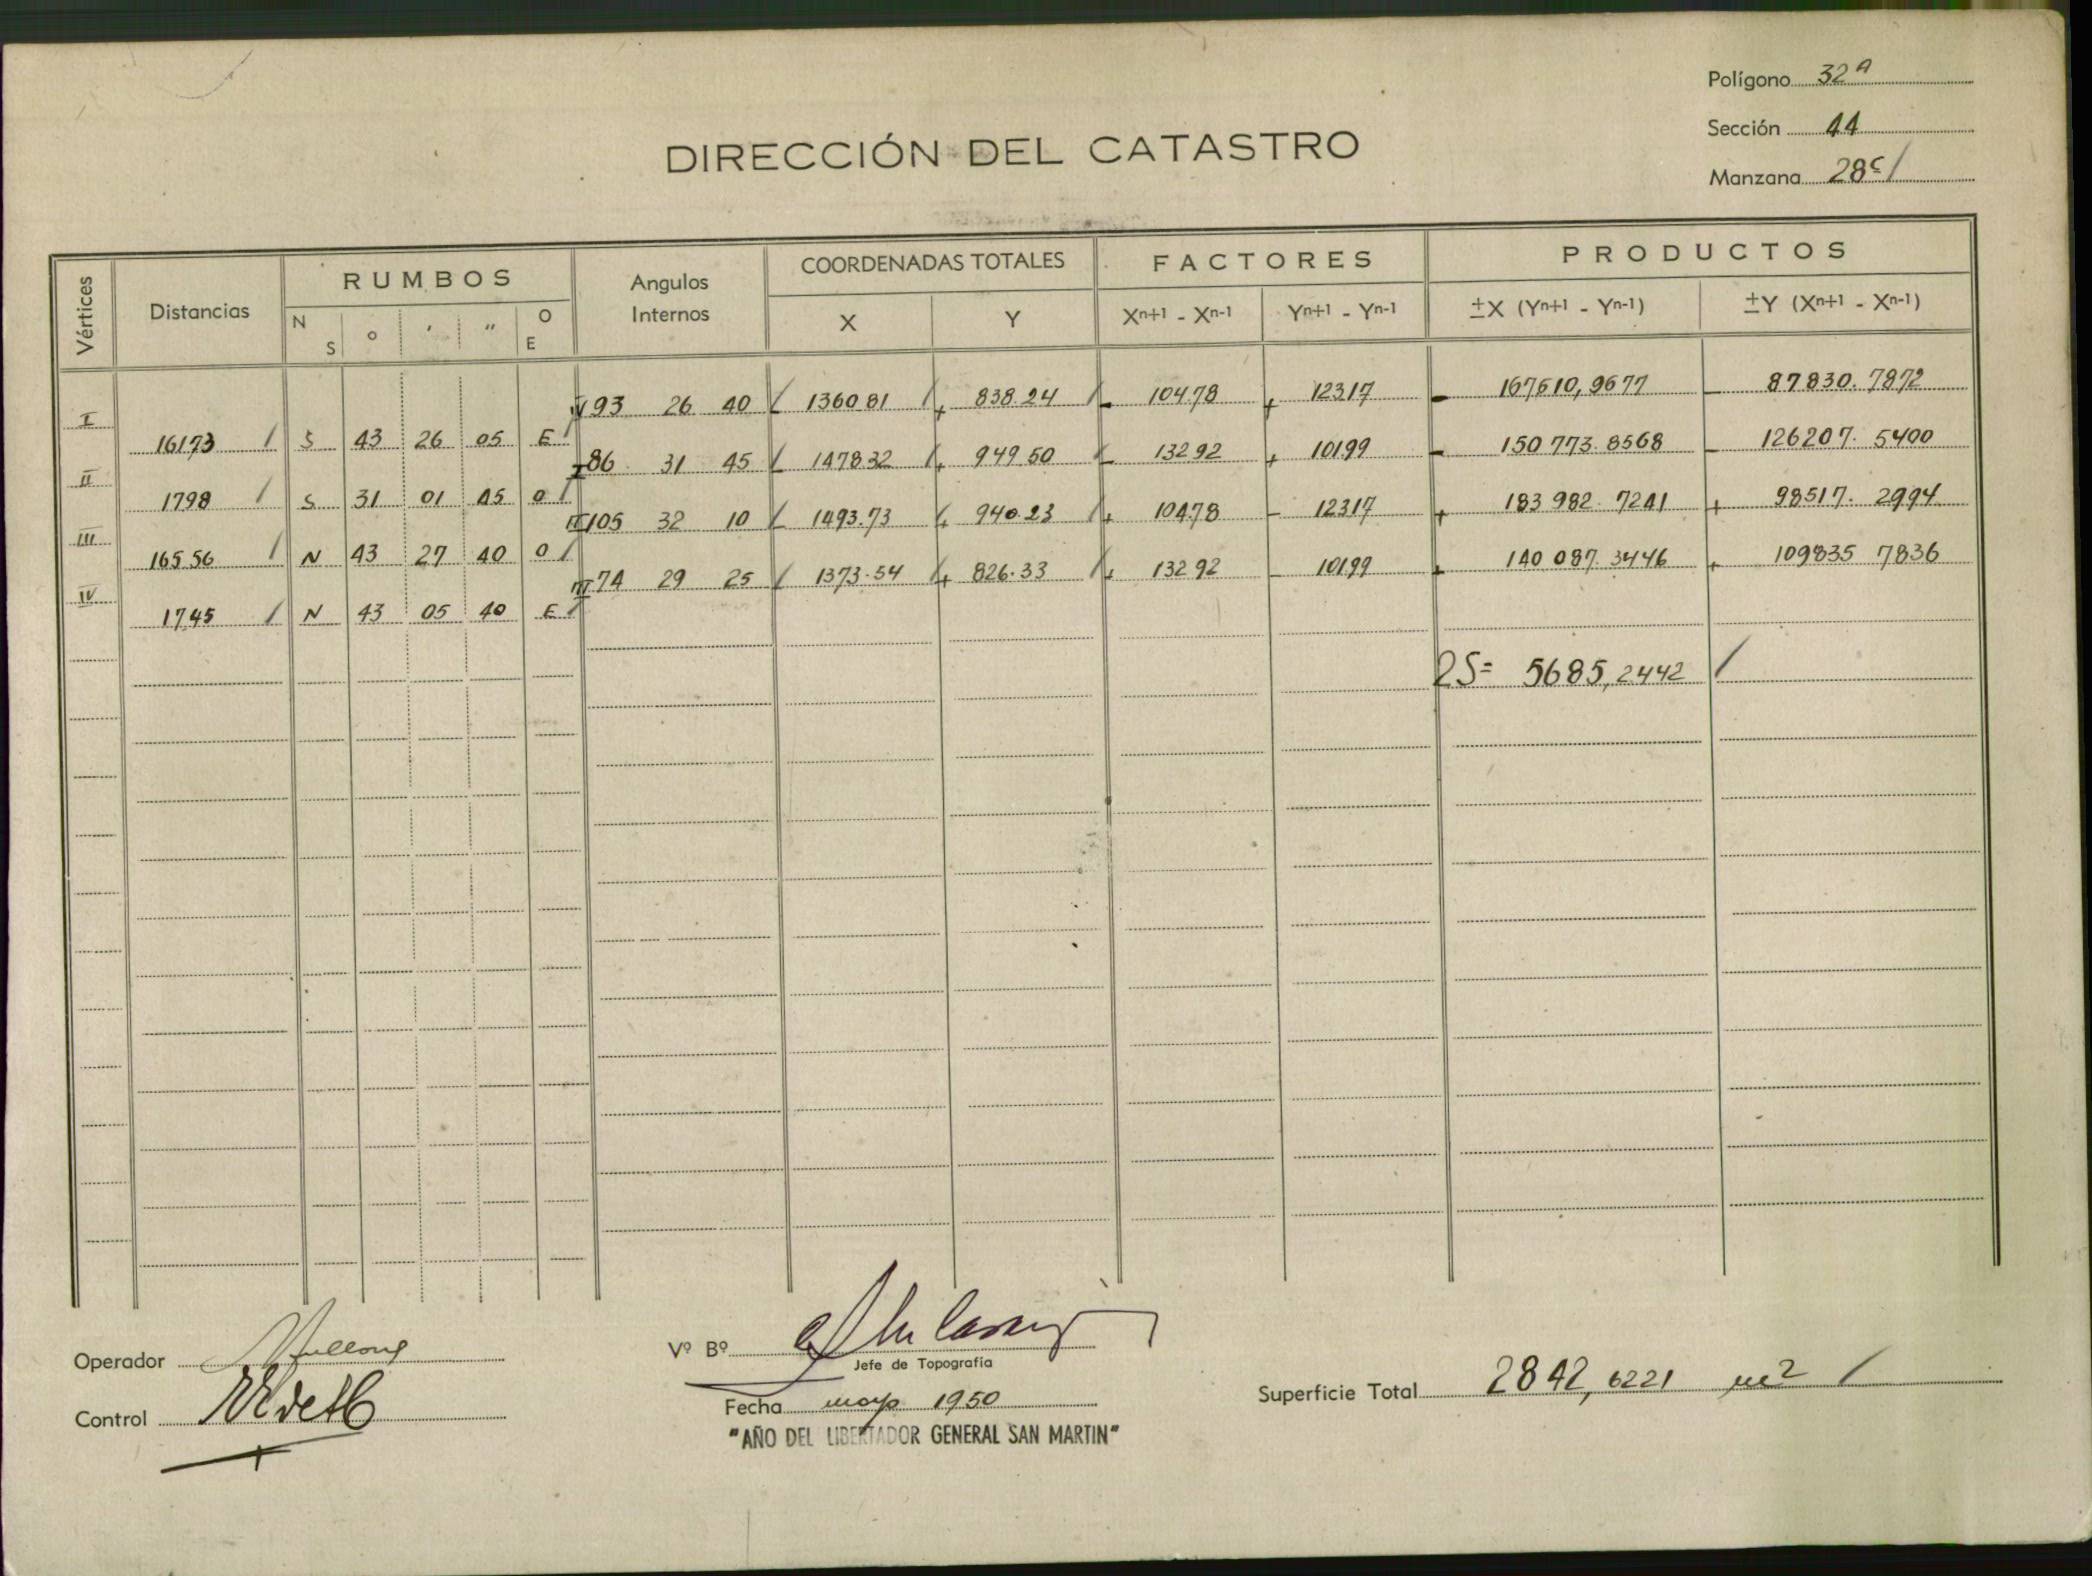 Polígono 32ª
Sección 44
Manzana 28c
DIRECCIÓN DEL CATASTRO
Vértices Distancias RUMBOS Angulos Internos COORDENADAS TOTALES FACTORES PRODUCTOS
N S o ' " O E X Y Xn+1 - Xn-1 Yn+1 - Yn-1 ±X (Yn+1 - Yn-1) ±Y (Xn+1 - Xn-1)
IV 93 26 40 - 1360 81 + 838.24 - 104.78 + 123.17 - 167610,9677 - 87830.7872
I 161,73 S 43 26 05 E
I 86 31 45 - 1478 32 + 949.50 - 132 92 + 101.99 - 150 773.8568 - 126207.5400
II 17.98 S 31 01 45 O
II 105 32 10 - 1493.73 + 940.23 + 104.78 - 123.17 + 183 982.7241 + 98517.2994
III 165.56 N 43 27 40 O
III 74 29 25 - 1373.54 + 826.33 + 132 92 - 101.99 + 140 087.3446 + 109835 7836
IV 17.45 N 43 05 40 E
2S= 5685,2442
Operador
Vº Bº
Jefe de Topografía
Control
Fecha mayo 1950
Superficie Total 2842,6221 m2
"AÑO DEL LIBERTADOR GENERAL SAN MARTIN"